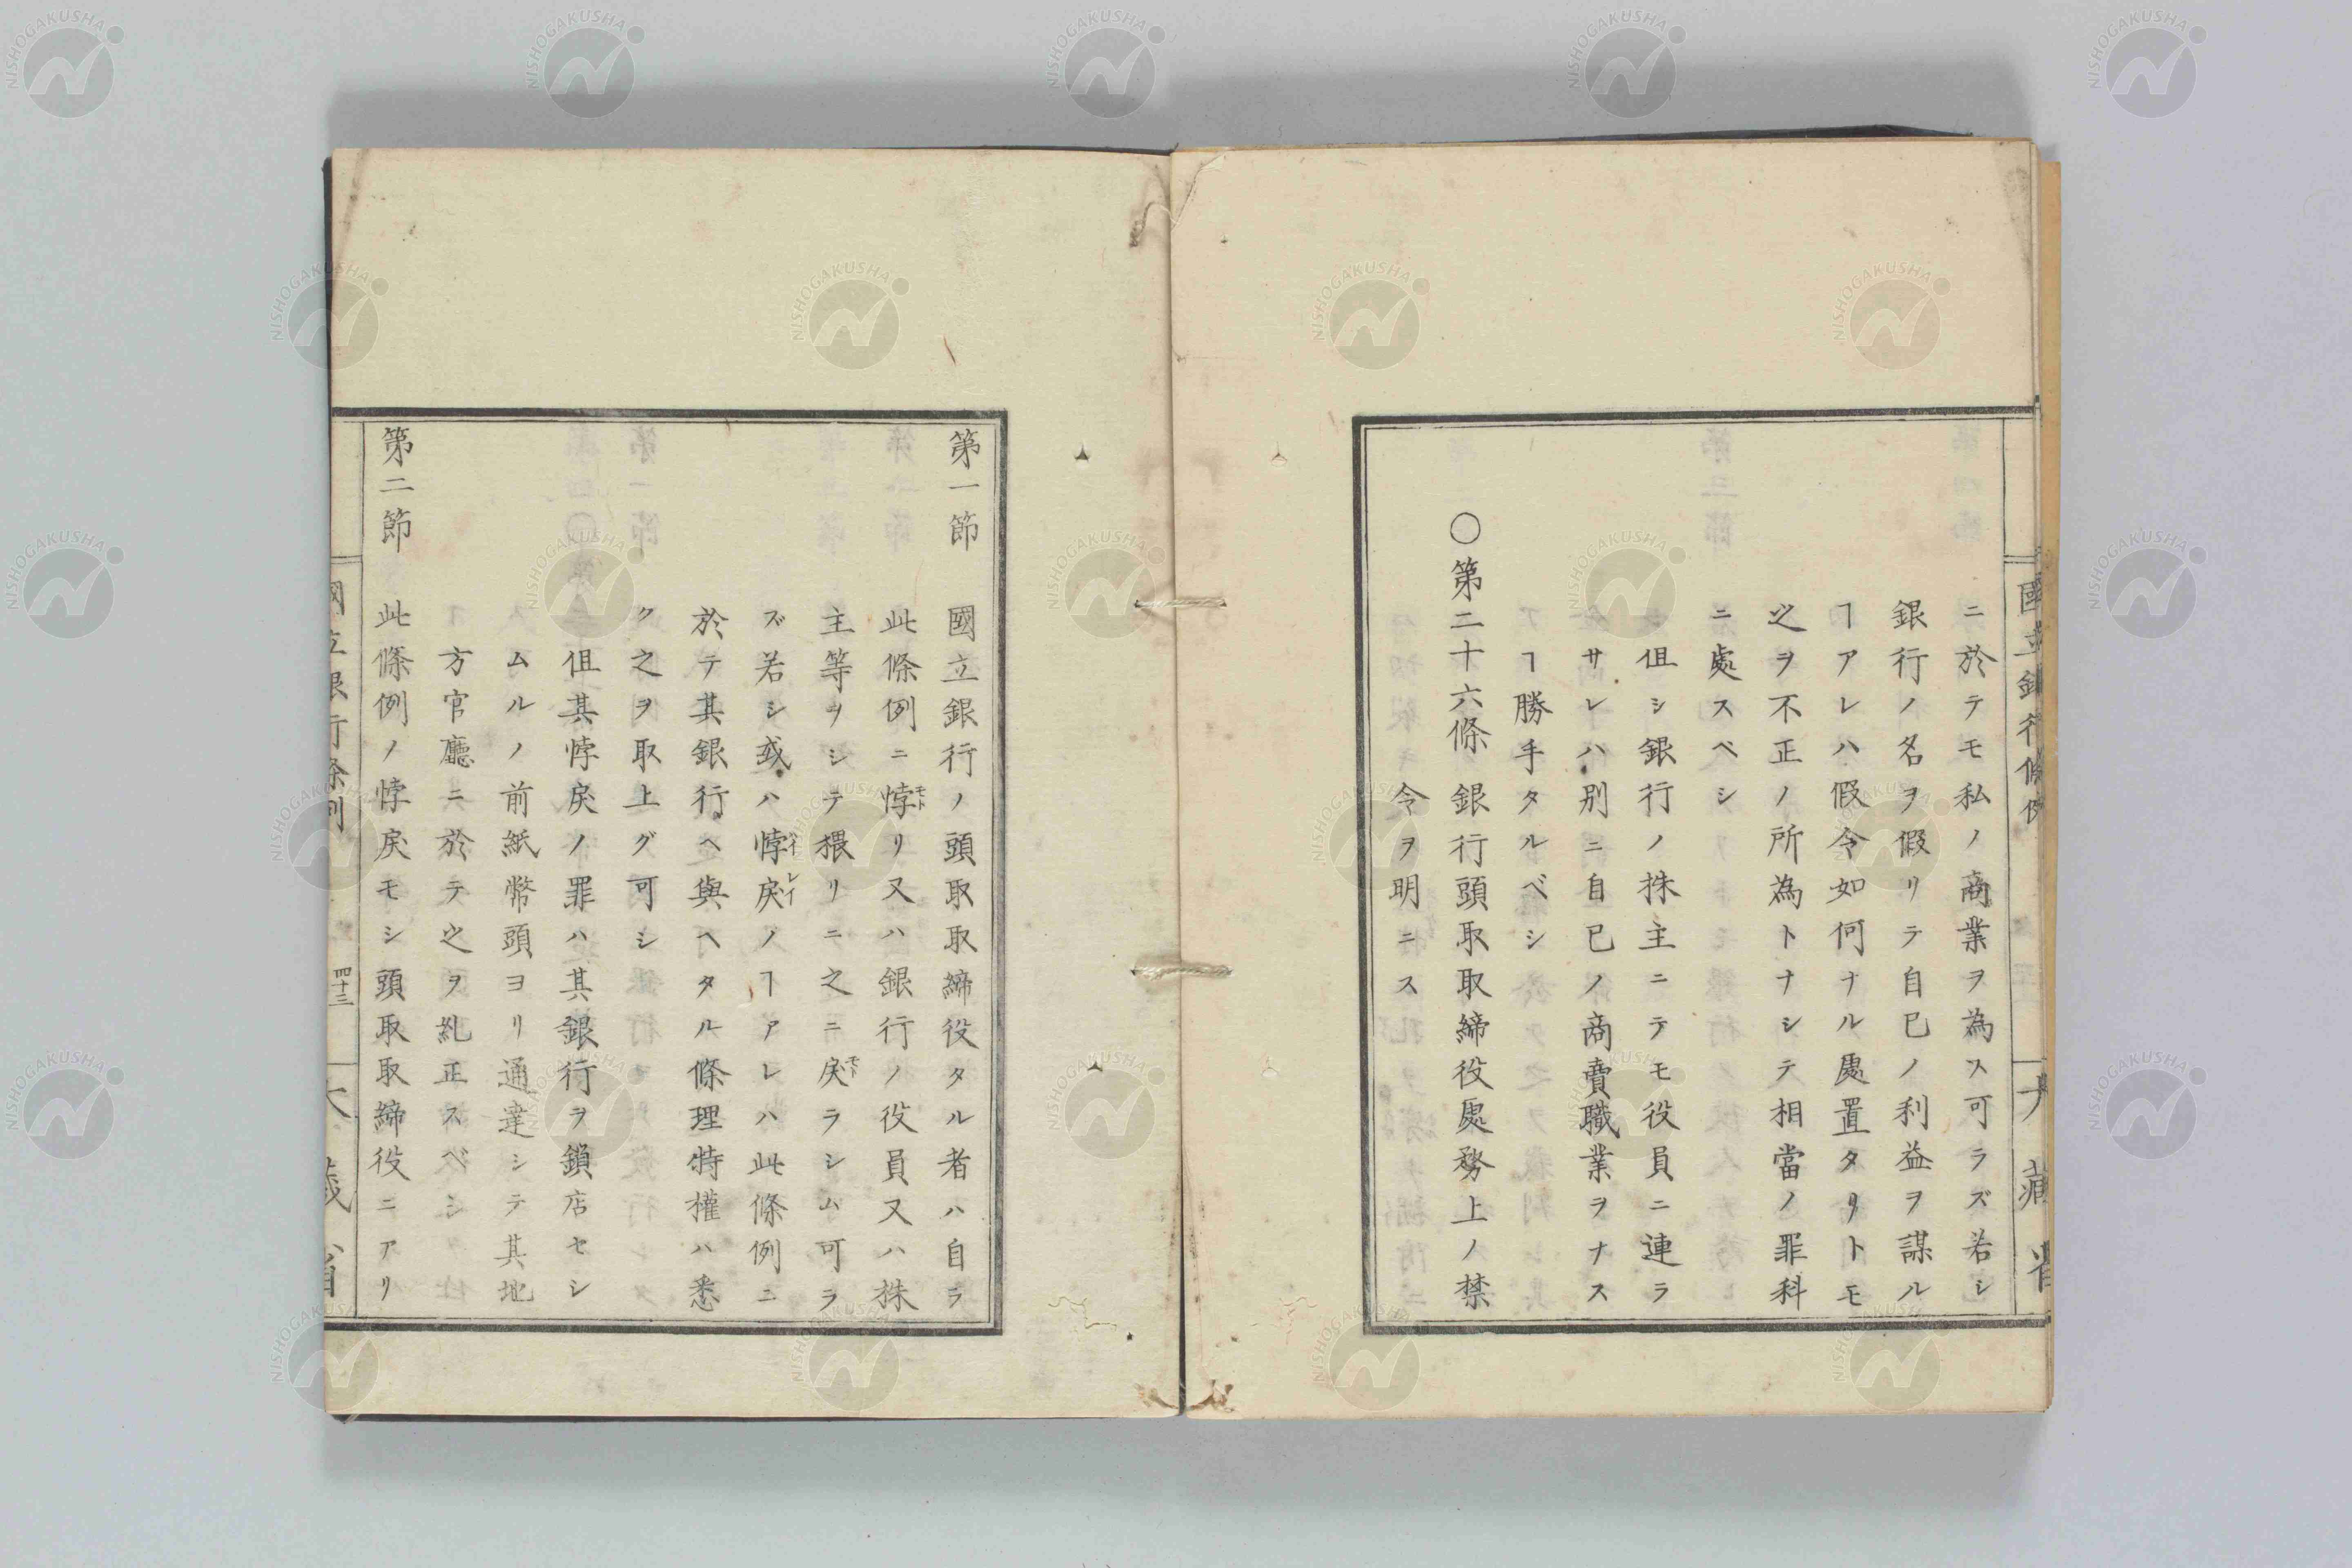 國立銀行條例
大藏省
ニ於テモ私ノ商業ヲ為ス可ラズ若シ
銀行ノ名ヲ假リテ自己ノ利益ヲ謀ル
ヿアレハ假令如何ナル處置タリトモ
之ヲ不正ノ所為トナシテ相當ノ罪科
ニ處スベシ
但シ銀行ノ株主ニテモ役員ニ連ラ
サレハ別ニ自己ノ商賣職業ヲナス
ヿ勝手タルベシ
〇第二十六條 銀行頭取取締役處務上ノ禁
令ヲ明ニス
第一節 國立銀行ノ頭取取締役タル者ハ自ラ
此條例ニ悖リ又ハ銀行ノ役員又ハ株
モト
主等ヲシテ猥リニ之ニ戾ラシム可ラ
モト
ズ若シ或ハ悖戾ノヿアレハ此條例ニ
ハイレイ
於テ其銀行ヘ與ヘタル條理特權ハ悉
ク之ヲ取上グ可シ
但其悖戾ノ罪ハ其銀行ヲ鎖店セシ
ムルノ前紙幣頭ヨリ通達シテ其地
方官廳ニ於テ之ヲ糺正スベシ
第二節 此條例ノ悖戾モシ頭取取締役ニアリ
國立銀行條例
四十三
大藏省
NISHOGAKUSHA